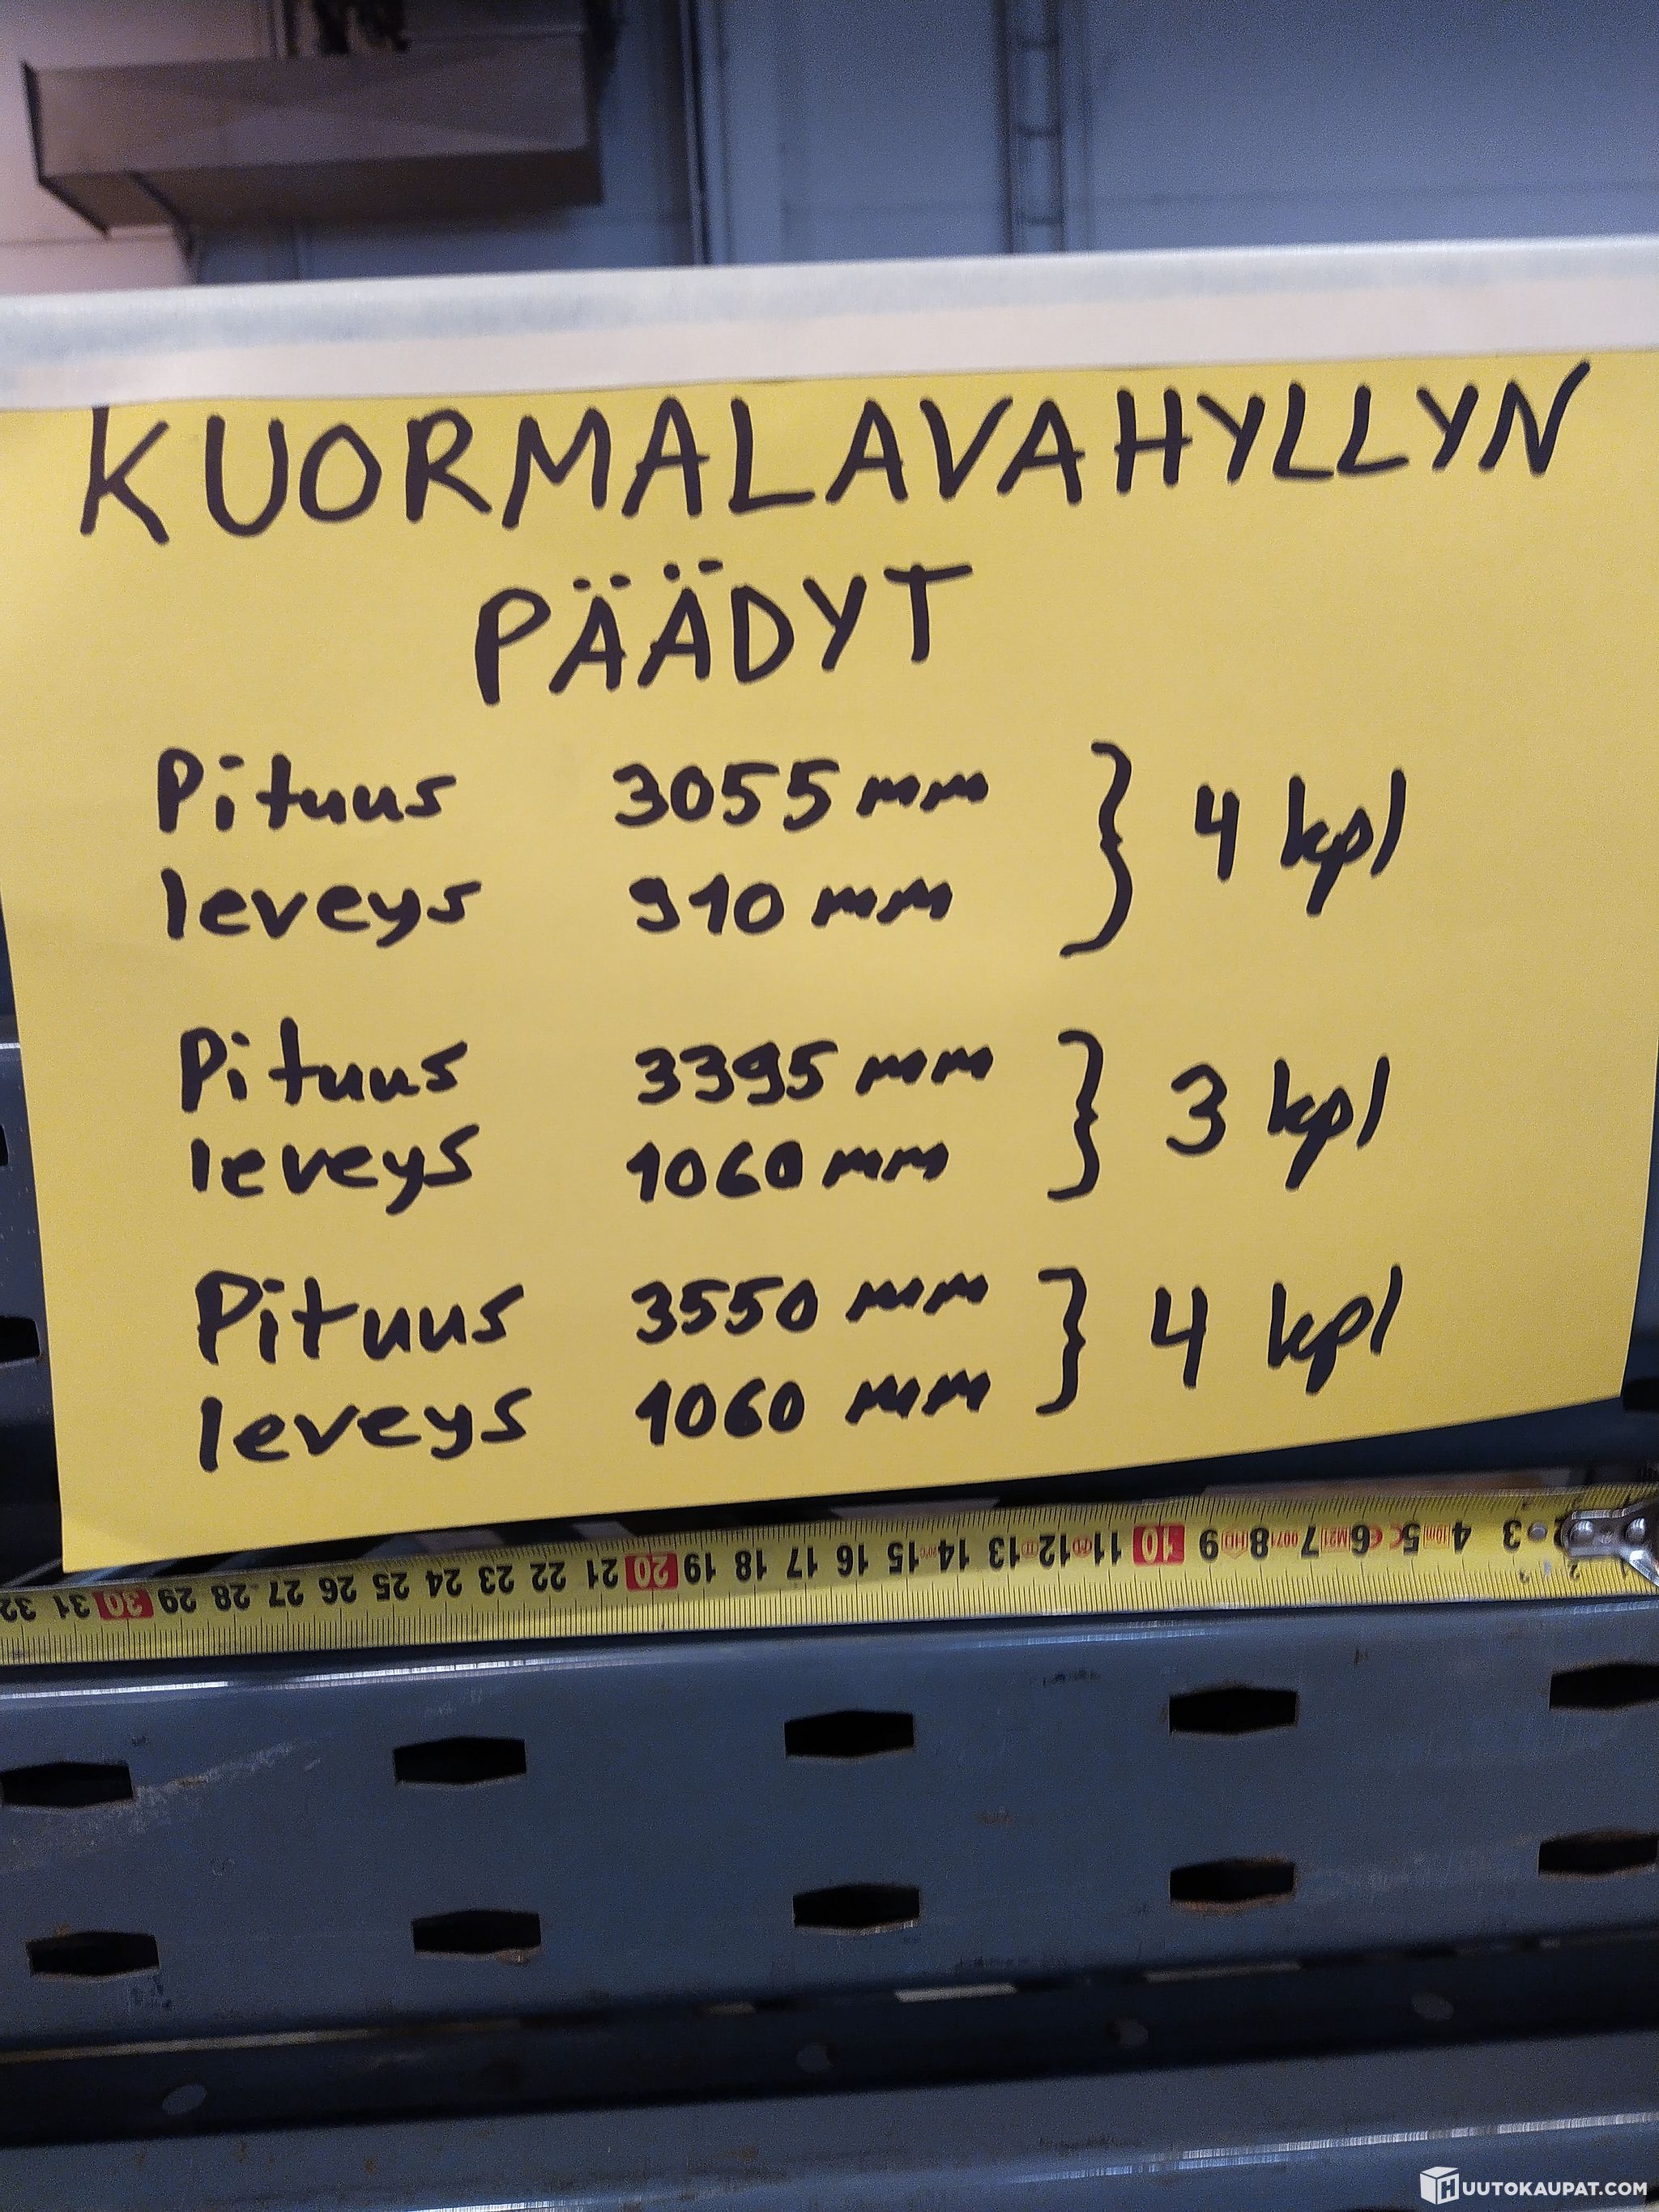 KUORMALAVAHYLLYN
PÄÄDYT
Pituus 3055 mm } 4 kpl
leveys 910 mm
Pituus 3395 mm } 3 kpl
leveys 1060 mm
Pituus 3550 mm } 4 kpl
leveys 1060 mm
32 31 30 29 28 27 26 25 24 23 22 21 20 19 18 17 16 15 14 13 12 11 10 9 8 7 6 5 4 3 2
HUUTOKAUPAT.COM